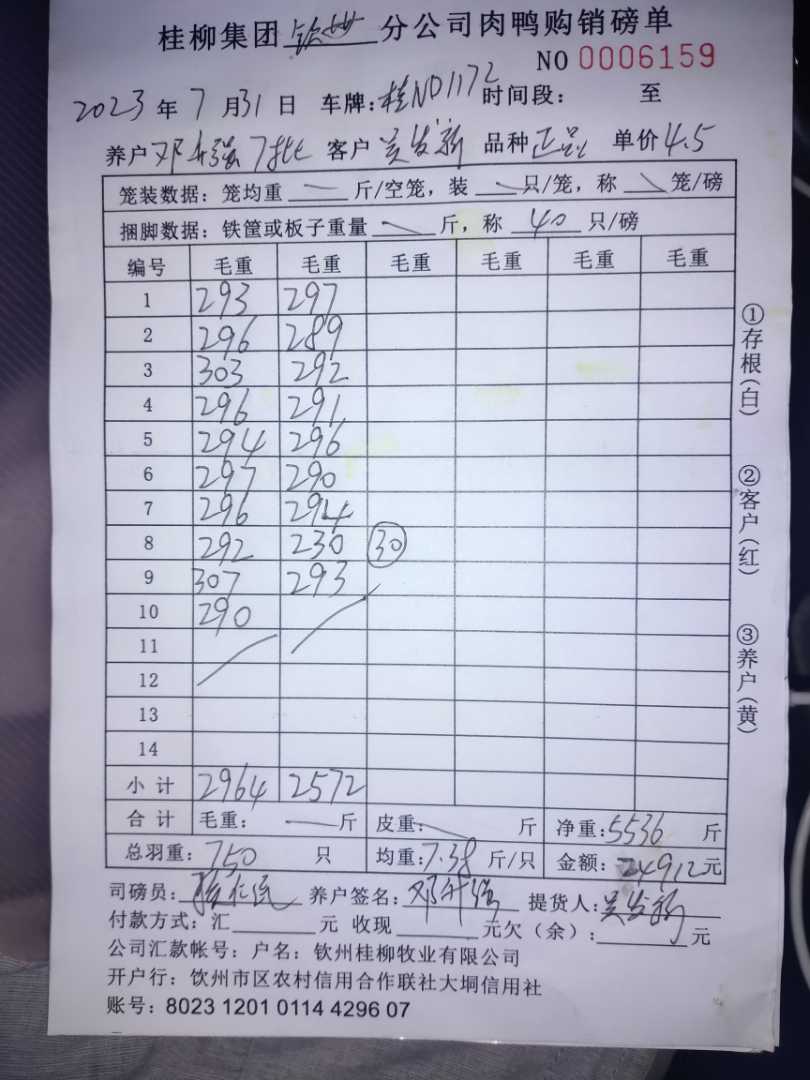 桂柳集团 钦州 分公司肉鸭购销磅单
NO 0006159
2023 年 7 月 31 日 车牌:桂ND1172 时间段: 至
养户 邓升强7批 客户 吴发新 品种 正品 单价 4.5
笼装数据:笼均重 — 斤/空笼,装 — 只/笼,称 — 笼/磅
捆脚数据:铁筐或板子重量 — 斤,称 40 只/磅
编号 毛重 毛重 毛重 毛重 毛重 毛重
1 293 297
2 296 289
3 303 292
4 296 291
5 294 296
6 297 290
7 296 294
8 292 230 30
9 307 293
10 290
11
12
13
14
小计 2964 2572
合计 毛重: — 斤 皮重: — 斤 净重:5536 斤
总羽重:750 只 均重:7.38 斤/只 金额:24912元
司磅员: 养户签名:邓升强 提货人:吴发新
付款方式:汇 元 收现 元欠(余): 元
公司汇款帐号:户名:钦州桂柳牧业有限公司
开户行:钦州市区农村信用合作联社大垌信用社
账号:8023 1201 0114 4296 07
①存根(白)
②客户(红)
③养户(黄)